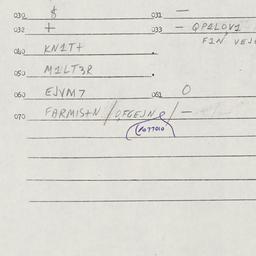 030 $ 031 —
032 + 033 — QP1LOV1
FIN VEJ
040 KN1T+
050 M1LT3R .
060 EJVM7 061 O
070 FARMIS+N / QFGEJN / —